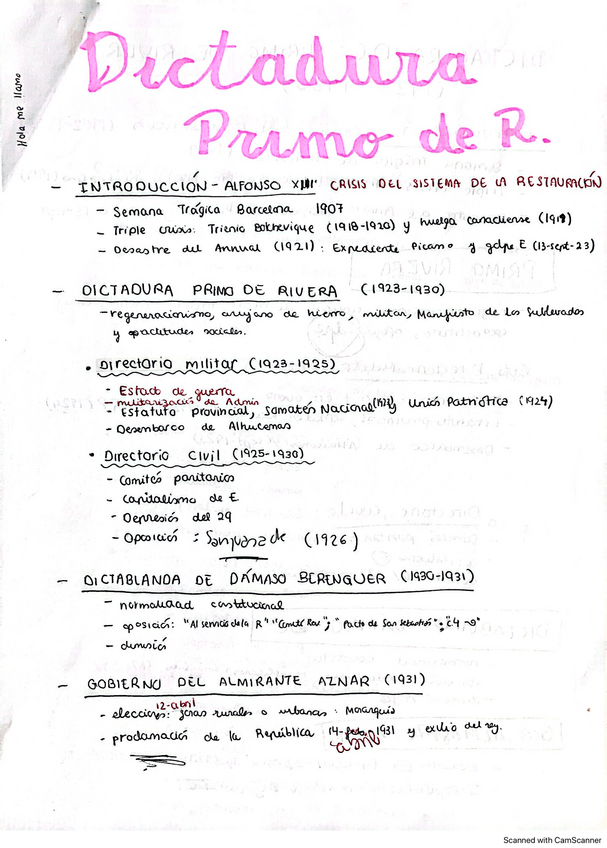 Hola me llamo
Dictadura
Primo de R.
- INTRODUCCIÓN - ALFONSO XIII CRISIS DEL SISTEMA DE LA RESTAURACIÓN
- Semana Trágica Barcelona 1907
- Triple crisis: Trienio Bolchevique (1918-1920) y huelga canadiense (1919)
- Desastre del Annual (1921): Expediente Picasso y golpe E (13-sept-23)
- DICTADURA PRIMO DE RIVERA (1923-1930)
- regeneracionismo, cirujano de hierro, militar, Manifiesto de los Sublevados
y actitudes sociales.
• Directorio militar (1923-1925)
- Estado de guerra
- militarización de Admin
- Estatuto provincial, Somatén Nacional y Unión Patriótica (1924)
- Desembarco de Alhucemas
• Directorio Civil (1925-1930)
- Comités paritarios
- Capitalismo de E
- Depresión del 29
- Oposición: Sanjuanada (1926)
- DICTABLANDA DE DÁMASO BERENGUER (1930-1931)
- normalidad constitucional
- oposición: "Al servicio de la R" "Comité Rev"; "Pacto de San Sebastián":
- dimisión
- GOBIERNO DEL ALMIRANTE AZNAR (1931)
12-abril
- elecciones: zonas rurales o urbanas: Monarquía
- proclamación de la República 14- 1931 y exilio del rey.
abril
Scanned with CamScanner